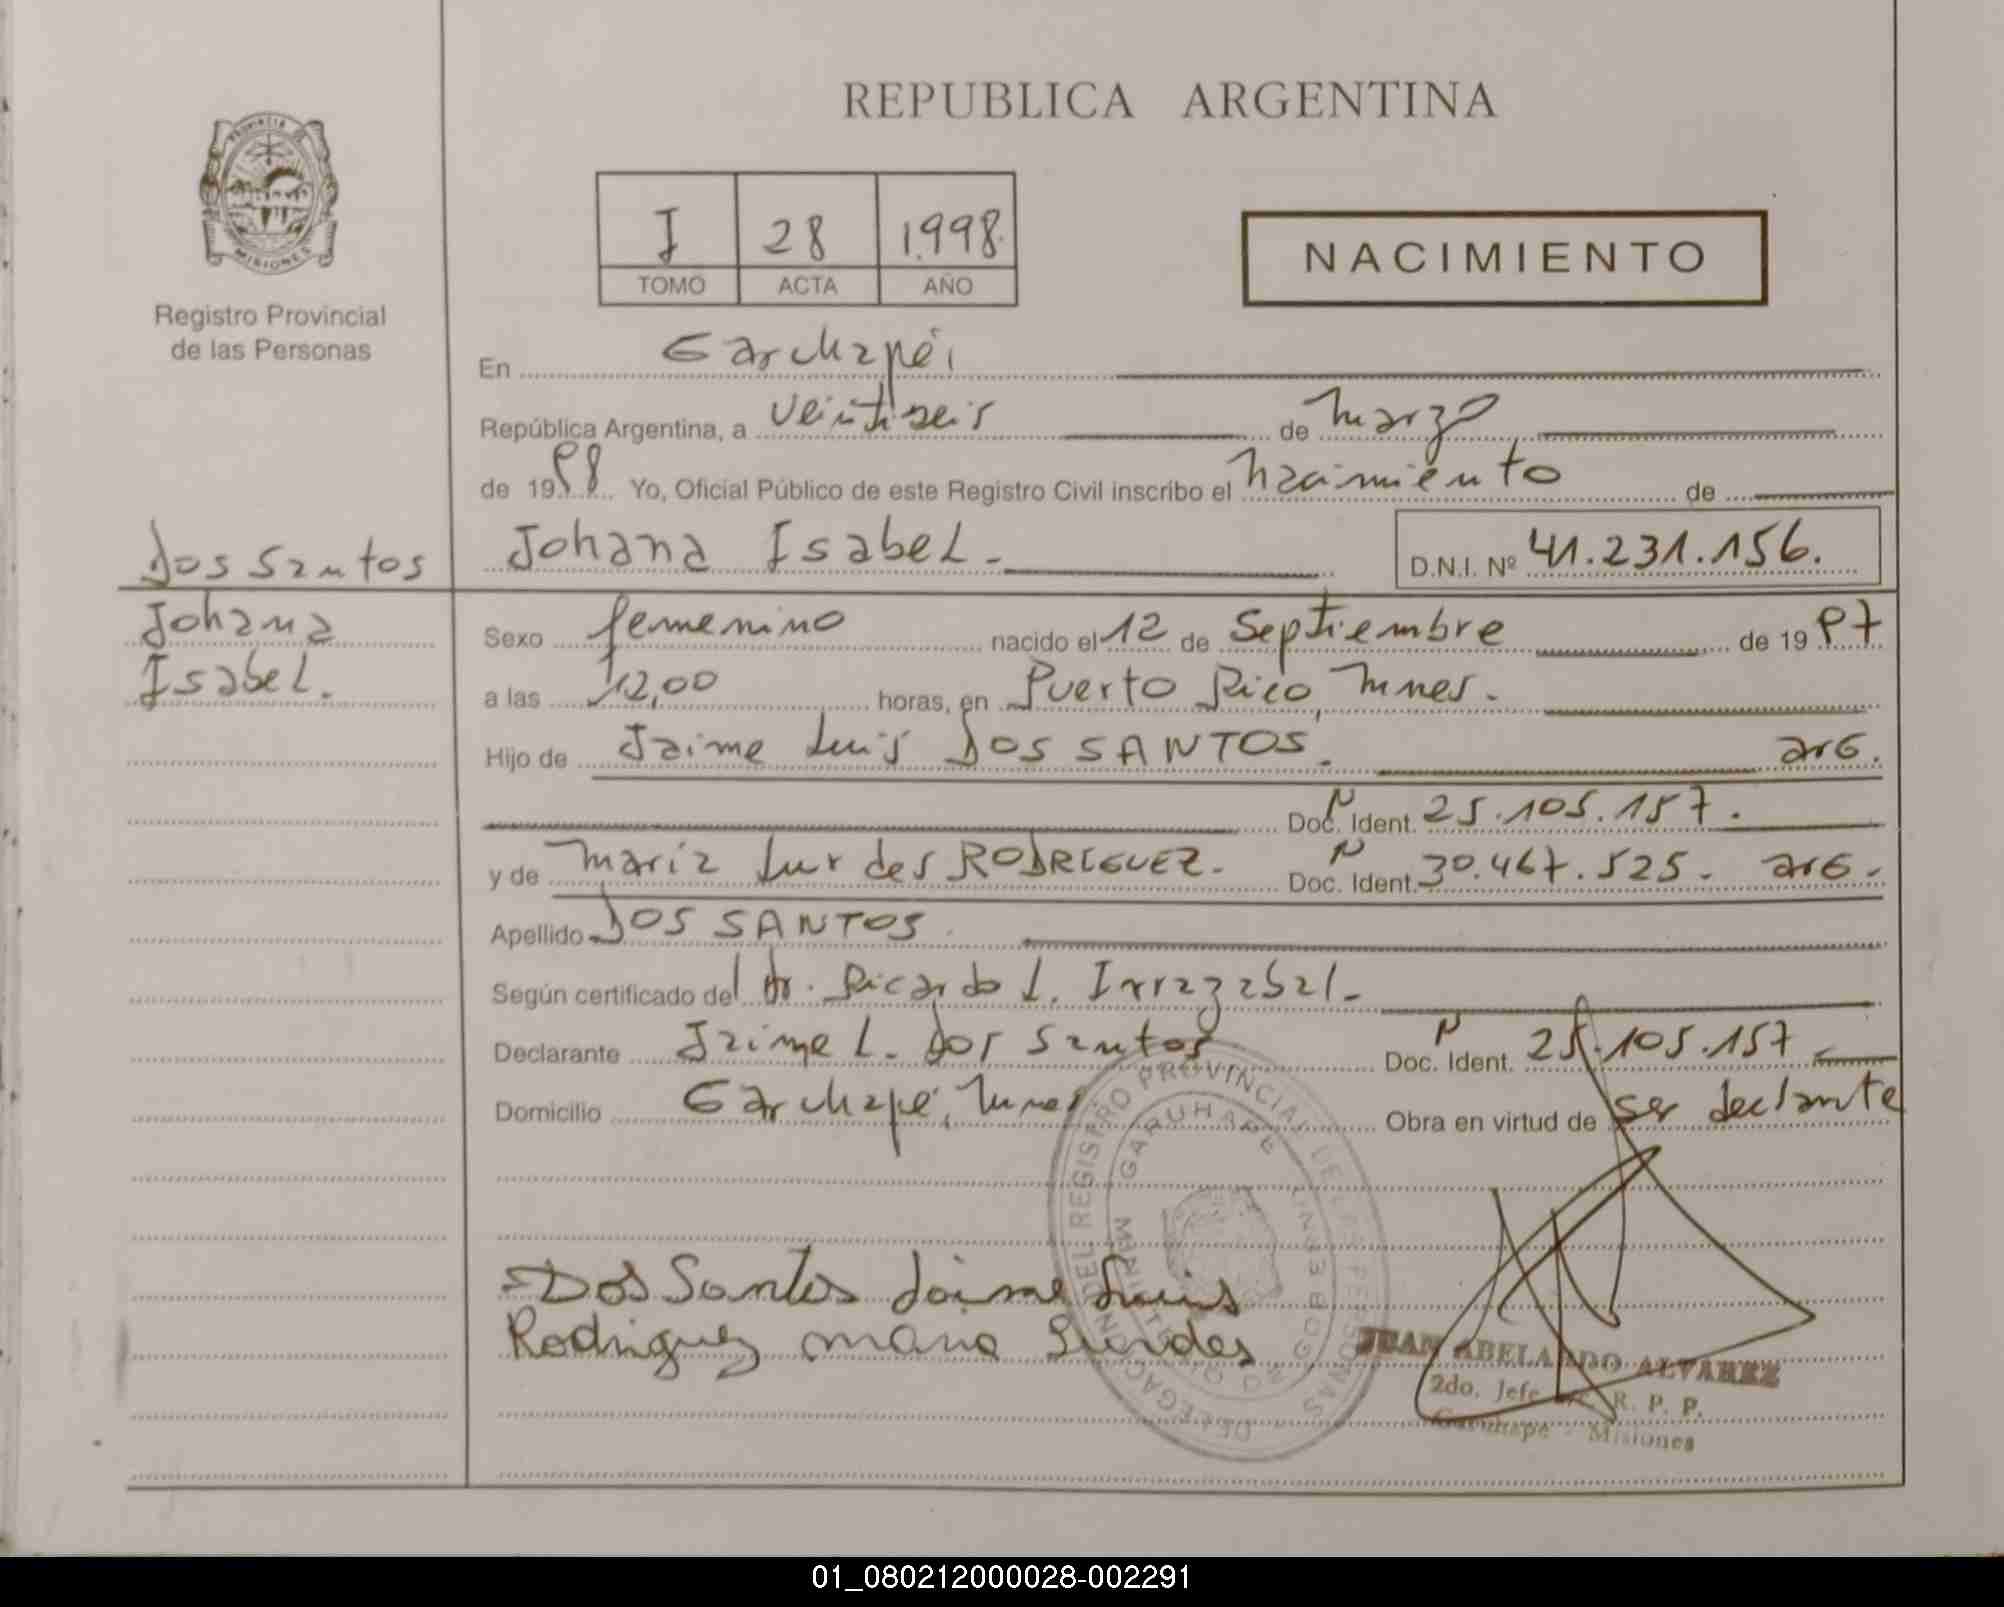 REPUBLICA ARGENTINA
PROVINCIA DE MISIONES
Registro Provincial
de las Personas
I 28 1.998
TOMO ACTA AÑO
NACIMIENTO
En Garuhapé,
República Argentina, a veintiseis de marzo
de 1998 Yo, Oficial Público de este Registro Civil inscribo el nacimiento de
Dos Santos
Johana
Isabel.
Johana Isabel.- D.N.I. Nº 41.231.156.
Sexo femenino nacido el 12 de Septiembre de 1997
a las 12,00 horas, en Puerto Rico, Mnes.
Hijo de Jaime Luis DOS SANTOS. arG.
Doc. Ident. 25.105.157.
y de Maria Lurdes RODRIGUEZ. Doc. Ident. 30.467.525. arG.
Apellido DOS SANTOS
Según certificado del Dr. Ricardo L. Irrazabal.-
Declarante Jaime L. Dos Santos Doc. Ident. 25.105.157
Domicilio Garuhapé, Mnes Obra en virtud de ser declarante
DELEGACION DEL REGISTRO PROVINCIAL DE LAS PERSONAS
GARUHAPE
Dos Santos Jaime Luis
Rodriguez maria Lurdes
JUAN ABELARDO ALVAREZ
2do. Jefe R. P. P.
Garuhape - Misiones
01_080212000028-002291